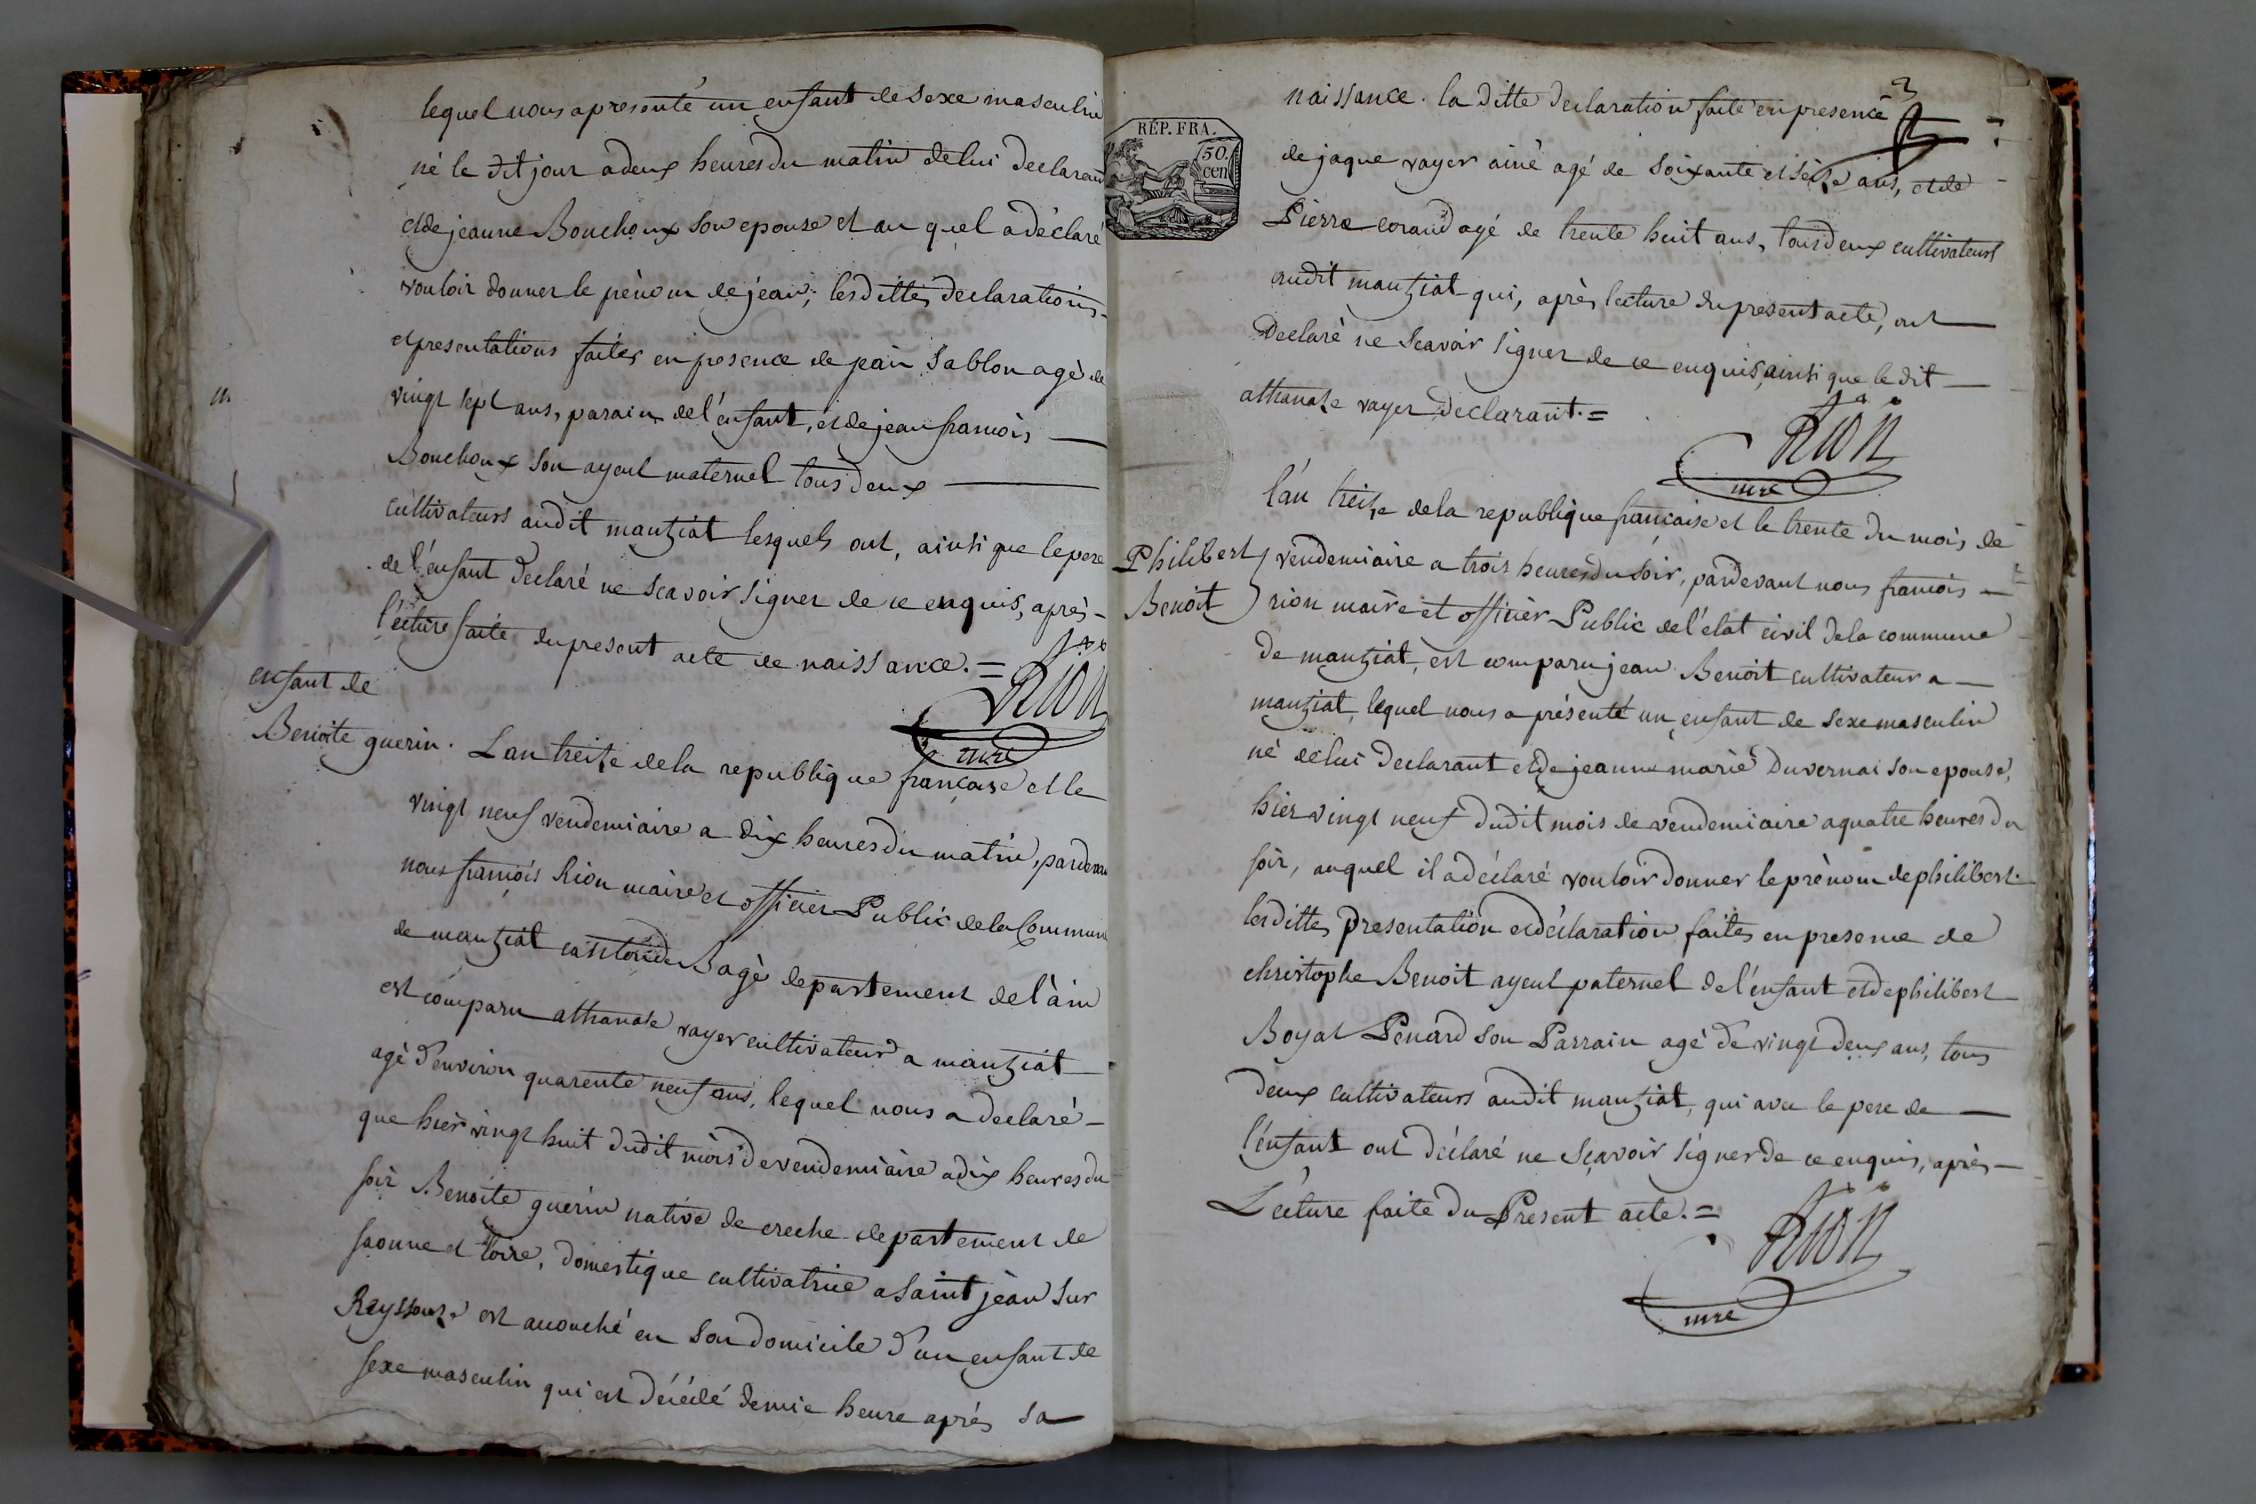 lequel nous apresenté un enfant de sexe masculin
né le dit jour a deux heures du matin de lui declarant
et de jeanne Bouchoux son epouse et au quel a déclaré
vouloir donner le pènom de jean; lesdittes declarations
et presentations faites en presence de jean Sablon agé de
vingt sept ans, parain de l'enfant, et de jean francois
Bouchoux son ayeul maternel tous deux
cultivateurs audit mantziat lesquels ont, ainsi que le pere
de l'enfant declaré ne scavoir signer de ce enquis, après
lecture faite du present acte de naissance. =
Rion
mre
enfant de
Benoite guerin.
Lan treize de la republique française et le
vingt neuf vendemiaire a dix heures du matin, pardevant
nous françois Rion maire et officier Public de la Commune
de mantziat canton de Bagé departement de l'ain
est comparu athanase rayer cultivateur a mantziat
agé d'environ quarente neuf ans, lequel nous a declaré
que hier vingt huit dudit mois de vendemiaire a dix heures du
soir Benoite guerin native de creche departement de
saonne et loire, domestique cultivatrice a saint jean sur
Reyssouze est accouché en son domicile d'un enfant de
sexe masculin qui est décédé demie heure après sa
3
RÉP. FRA.
50.
cen
naissance. la ditte declaration faite en presence
de jaque rayer ainé agé de soixante et seize ans, et de
Pierre corand agé de trente huit ans, tous deux cultivateurs
audit mantziat qui, après lecture du present acte, ont
Declaré ne scavoir signer de ce enquis, ainsi que le dit
athanase rayer declarant. =
Rion
mre
Philibert
Benoit
l'an treize de la republique française et le trente du mois de
vendemiaire a trois heures du soir, pardevant nous francois
rion maire et officier Public de l'etat civil de la commune
de mantziat, est comparu jean Benoit cultivateur a
mantziat, lequel nous a présenté un enfant de sexe masculin
né de lui declarant et de jeanne marie Duvernai son epouse,
hier vingt neuf dudit mois de vendemiaire a quatre heures du
soir, auquel il a déclaré vouloir donner le prènom de philibert.
lesdittes presentation et déclaration faites en presence de
christophe Benoit ayeul paternel de l'enfant et de philibert
Boyat Penard son Parrain agé de vingt deux ans, tous
deux cultivateurs audit mantziat, qui avec le pere de
l'enfant ont déclaré ne sçavoir signer de ce enquis, après
Lecture faite du Present acte. =
Rion
mre